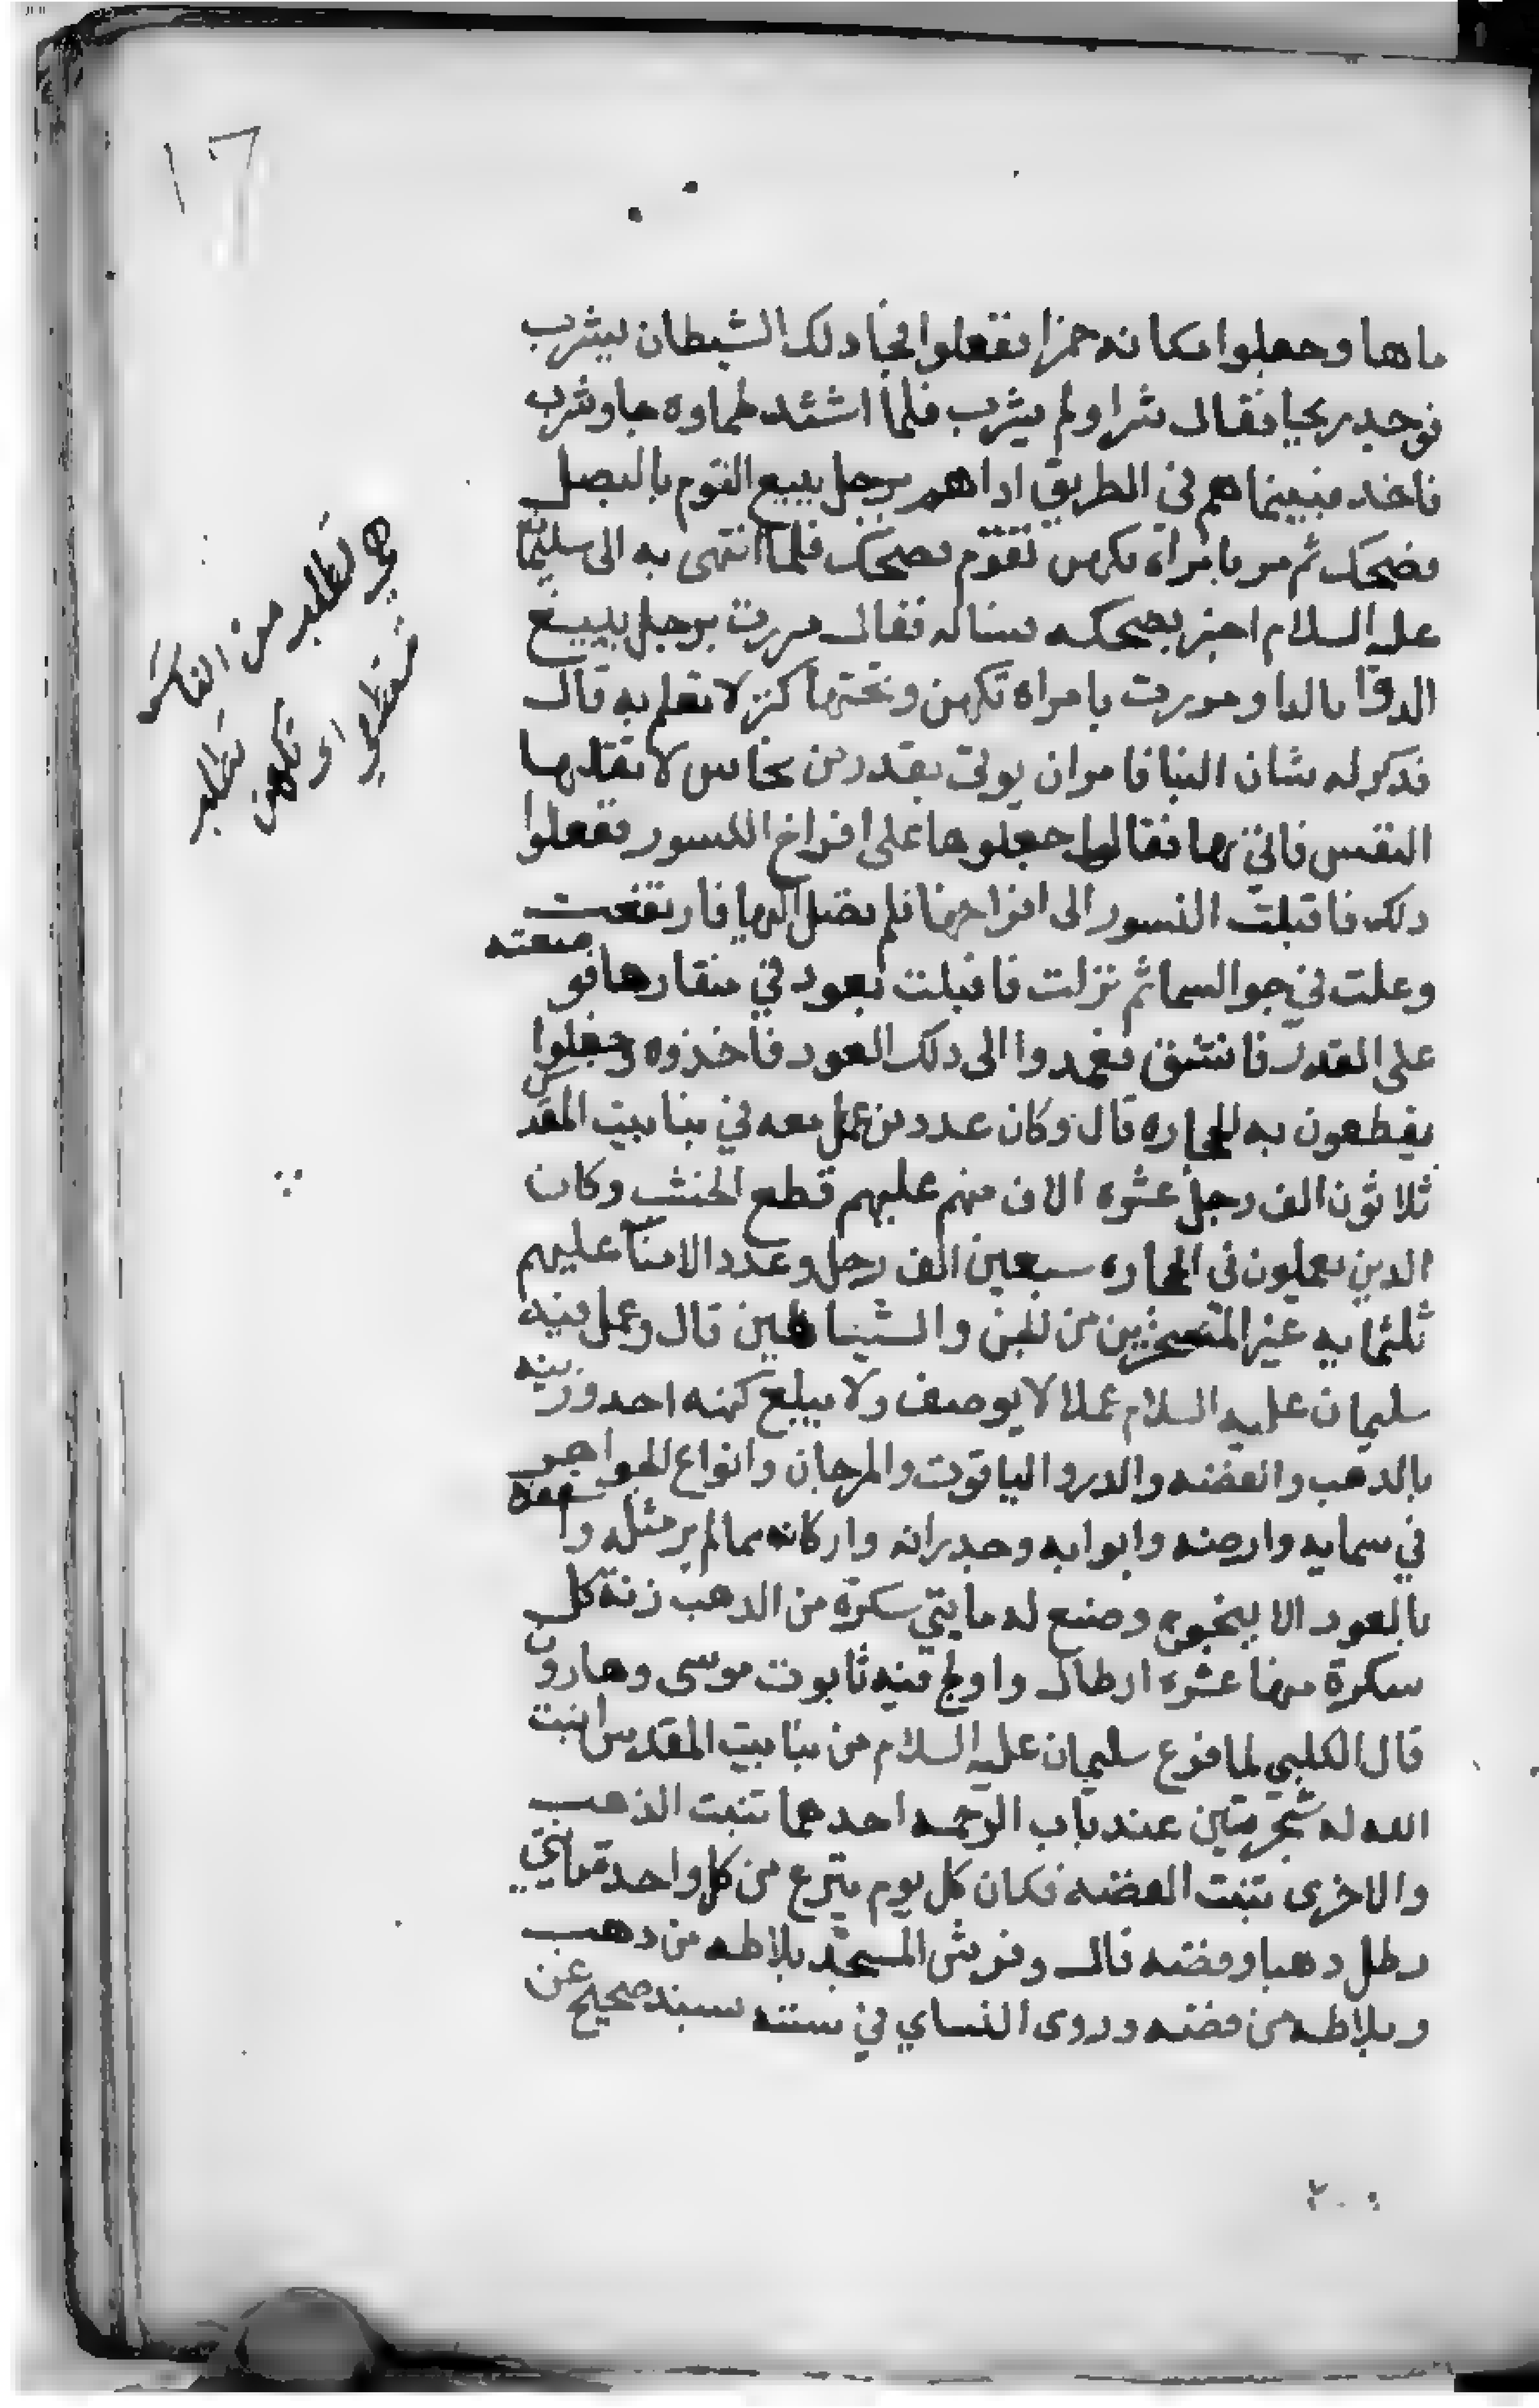 ١٦
ماها وجعلوا مكانه خمرا ففعلوا فجا دلك الشيطان ليشرب
فوجد ريحا فقال شرا ولم يشرب فلما اشتد ظماوه جا وشرب
فاخد فبينماهم في الطريق اداهم برجل يبيع الثوم بالبصل
فضحك ثم مر بامراة تكهن لقوم فضحك فلما انتهى به الى سليمان
عليه السلام اخبر بضحكه فساله فقال مررت برجل يبيع
الدوا بالدا ومررت بامراة تكهن وتحتها كنز لا تعلم به قال
فدكر له شان البنا فامر ان يوتى بقدر من نحاس لا تقلها
النفس فاتي بها فقال اجعلوها على افراخ النسور ففعلوا
دلك فاقبلت النسور الى افراخها فلم تصل اليها فارتفعت
وعلت في جو السما ثم نزلت فاقبلت بعود في منقارها فوضعته
على القدر فانشق فعمدوا الى دلك العود فاخذوه وجعلوا
يقطعون به الحجاره قال وكان عدد من عمل معه في بنا بيت المقدس
ثلاثون الف رجل عشره الاف منهم عليهم قطع الخشب وكان
الدين يعملون في الحجاره سبعين الف رجل وعدد الامنا عليهم
ثلثمايه غير المتسخرين من الجن والشياطين قال وعمل فيه
سليمان عليه السلام عملا لا يوصف ولا يبلغ كنهه احد وزينه
بالدهب والفضه والدر والياقوت والمرجان وانواع الجواهر
في سمايه وارضه وابوابه وجدرانه واركانه مما لم ير مثله وسقفه
بالعود الا ليجوج وصنع له مايتي سكرة من الدهب زنة كل
سكرة منها عشره ارطال واولج فيه تابوت موسى وهارون
قال الكلبي لما فرغ سليمان عليه السلام من بنا بيت المقدس انبت
الله له شجرتين عند باب الرحمه احدهما تنبت الذهب
والاخرى تنبت الفضه فكان كل يوم ينزع من كل واحدة مايتي
رطل دهبا وفضه قال وفرش المسجد بلاطه من دهب
وبلاطه من فضه وروى النساي في سننه بسند صحيح عن